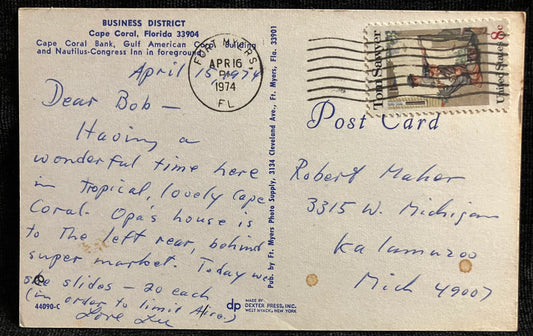 BUSINESS DISTRICT
Cape Coral, Florida 33904
Cape Coral Bank, Gulf American Corp. Building
and Nautilus-Congress Inn in foreground.
April 15, 1974
Dear Bob —
Having a
wonderful time here
in tropical, lovely Cape
Coral. Opa's house is
to the left rear, behind
super market. Today we
see slides — 20 each
(in order to limit
Love
44090-C
Pub. by Ft. Myers Photo Supply, 3134 Cleveland Ave., Ft. Myers, Fla. 33901
dp
MADE BY:
DEXTER PRESS, INC.
WEST NYACK, NEW YORK
FORT MYERS,
APR 16
PM
1974
FL
Tom Sawyer
United States 8c
Post Card
Robert Maher
3315 W. Michigan
Kalamazoo
Mich 49007